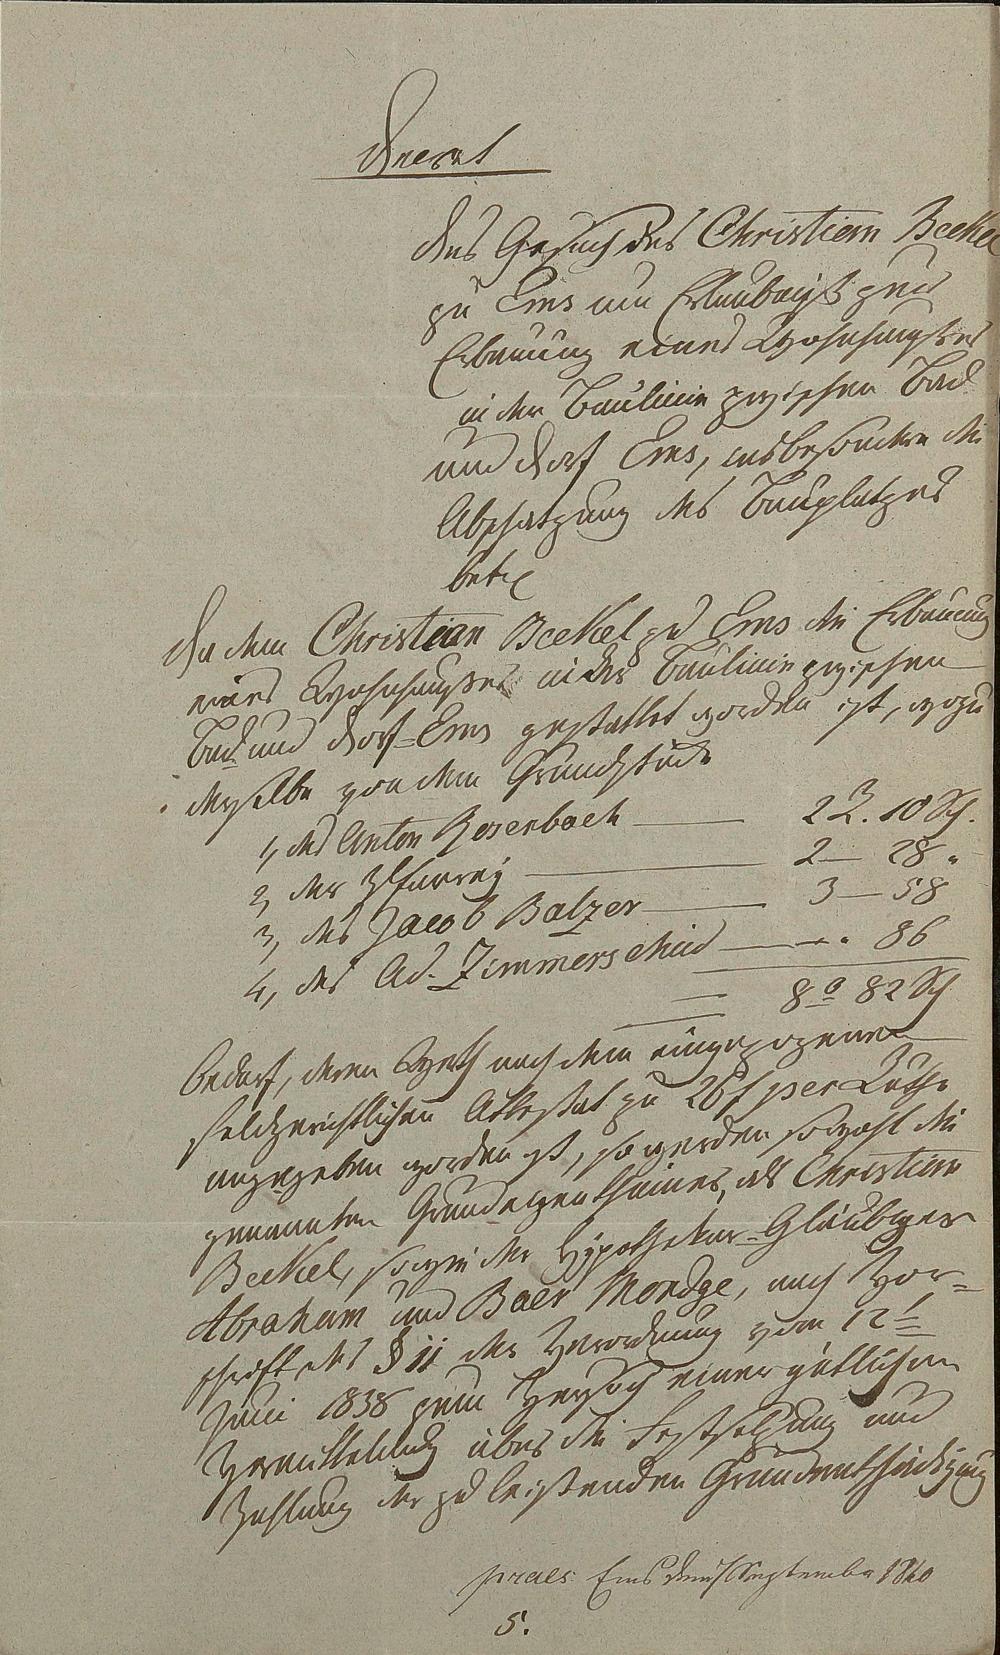 Decret
Das Gesuch des Christian Beckel
zu Ems um Erlaubniß zur
Erbauung eines Wohnhaußes
in der Baulinie zwischen Bad
und Dorf Ems, insbesondere die
Abschatzung des Bauplatzes
betr
Da dem Christian Beckel zu Ems die Erbauung
eines Wohnhaußes in der Baulinie zwischen
Bad und Dorf-Ems gestattet worden ist, wozu
derselbe von dem Grundstück
1, des Anton Rosenbach — 2 R. 10 Sch.
2, der Pfarrey — 2 — 28 "
3, des Jacob Balzer — 3 — 58
4, des Ad. Zimmerschied — " 86
8 0 82 Sch
bedarf, deren Werth nach dem eingezogenen
feldgerichtlichen Attestat zu 26 f per Ruthe
angegeben worden ist, so werden sowohl die
genannten Grundeigenthümer, als Christian
Beckel, sowie der Hypothekar-Gläubiger
Abraham und Baer Mordge, nach Vor-
schrift des § 11 der Verordnung vom 12t
Juni 1838 zum Versuch einer gütlichen
Vermittelung über die Festsetzung und
Zahlung der zu leistenden Grundentschädigung
praes: Ems September 1840
5.